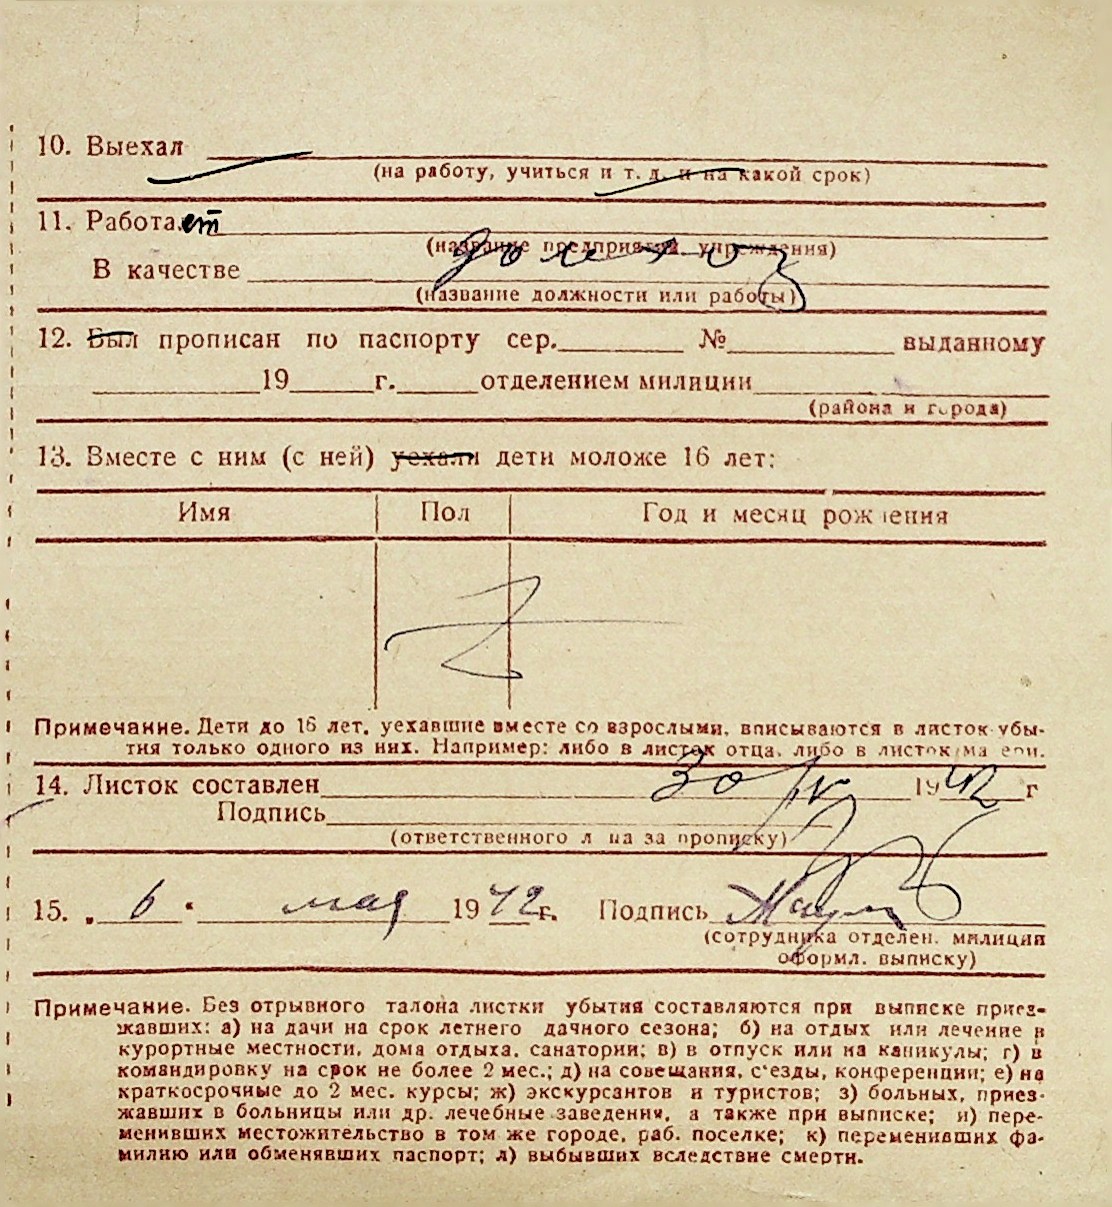 10. Выехал
(на работу, учиться и т. д. и на какой срок)
11. Работает
(название предприятия, учреждения)
В качестве домхоз
(название должности или работы)
12. Был прописан по паспорту сер. № выданному
19 г. отделением милиции
(района и города)
13. Вместе с ним (с ней) уехали дети моложе 16 лет:
Имя Пол Год и месяц рождения
Примечание. Дети до 16 лет, уехавшие вместе со взрослыми, вписываются в листок убы-
тия только одного из них. Например: либо в листок отца, либо в листок матери.
14. Листок составлен 30/IV 1942 г
Подпись
(ответственного лица за прописку)
15. „ 6 " мая 1942 г. Подпись
(сотрудника отделен. милиции
оформл. выписку)
Примечание. Без отрывного талона листки убытия составляются при выписке приез-
жавших: а) на дачи на срок летнего дачного сезона; б) на отдых или лечение в
курортные местности, дома отдыха, санатории; в) в отпуск или на каникулы; г) в
командировку на срок не более 2 мес.; д) на совещания, с'езды, конференции; е) на
краткосрочные до 2 мес. курсы; ж) экскурсантов и туристов; з) больных, приез-
жавших в больницы или др. лечебные заведения, а также при выписке; и) пере-
менивших местожительство в том же городе, раб. поселке; к) переменивших фа-
милию или обменявших паспорт; л) выбывших вследствие смерти.